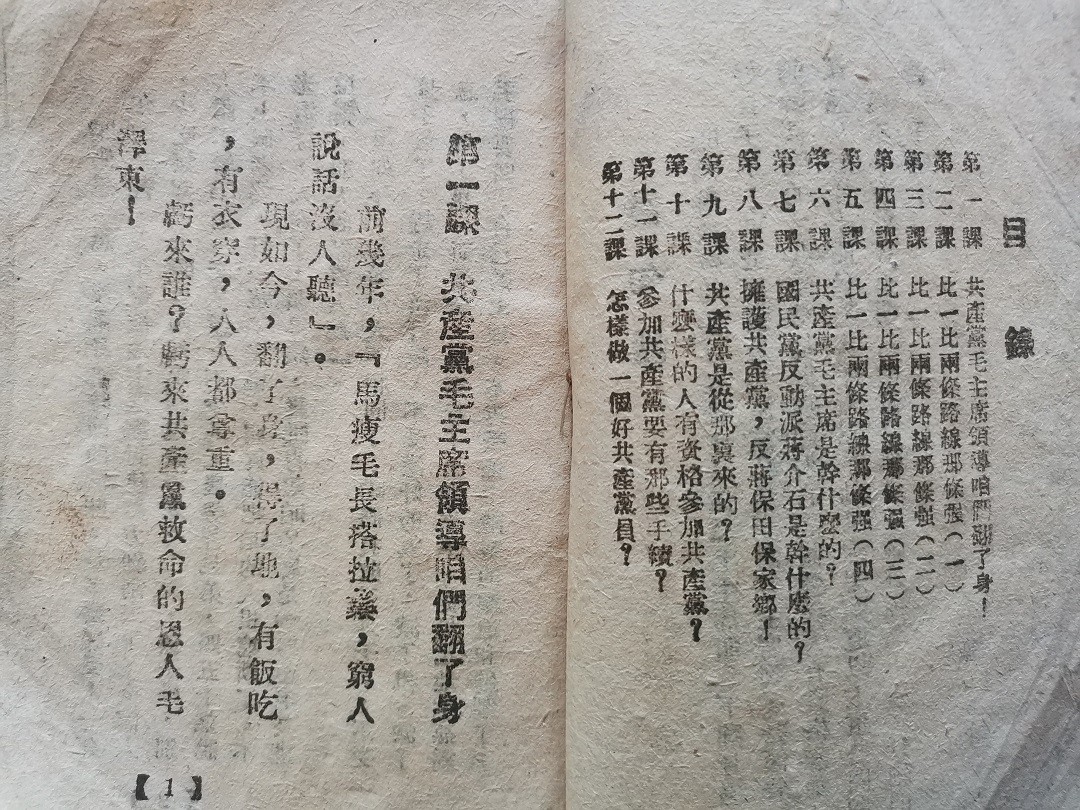 目錄
第一課 共產黨毛主席領導咱們翻了身！
第二課 比一比兩條路線那條强(一)
第三課 比一比兩條路線那條强(二)
第四課 比一比兩條路線那條强(三)
第五課 比一比兩條路線那條强(四)
第六課 共產黨毛主席是幹什麽的？
第七課 國民黨反動派蔣介石是幹什麽的？
第八課 擁護共產黨，反蔣保田保家鄉！
第九課 共產黨是從那裏來的？
第十課 什麽樣的人有資格參加共產黨？
第十一課 參加共產黨要有那些手續？
第十二課 怎樣做一個好共產黨員？
第一課 共產黨毛主席領導咱們翻了身
前幾年，「馬瘦毛長搭拉鬃，窮人
說話沒人聽」。
現如今，翻了身，得了地，有飯吃
，有衣穿，人人都尊重。
虧來誰？虧來共產黨救命的恩人毛
澤東！
【1】